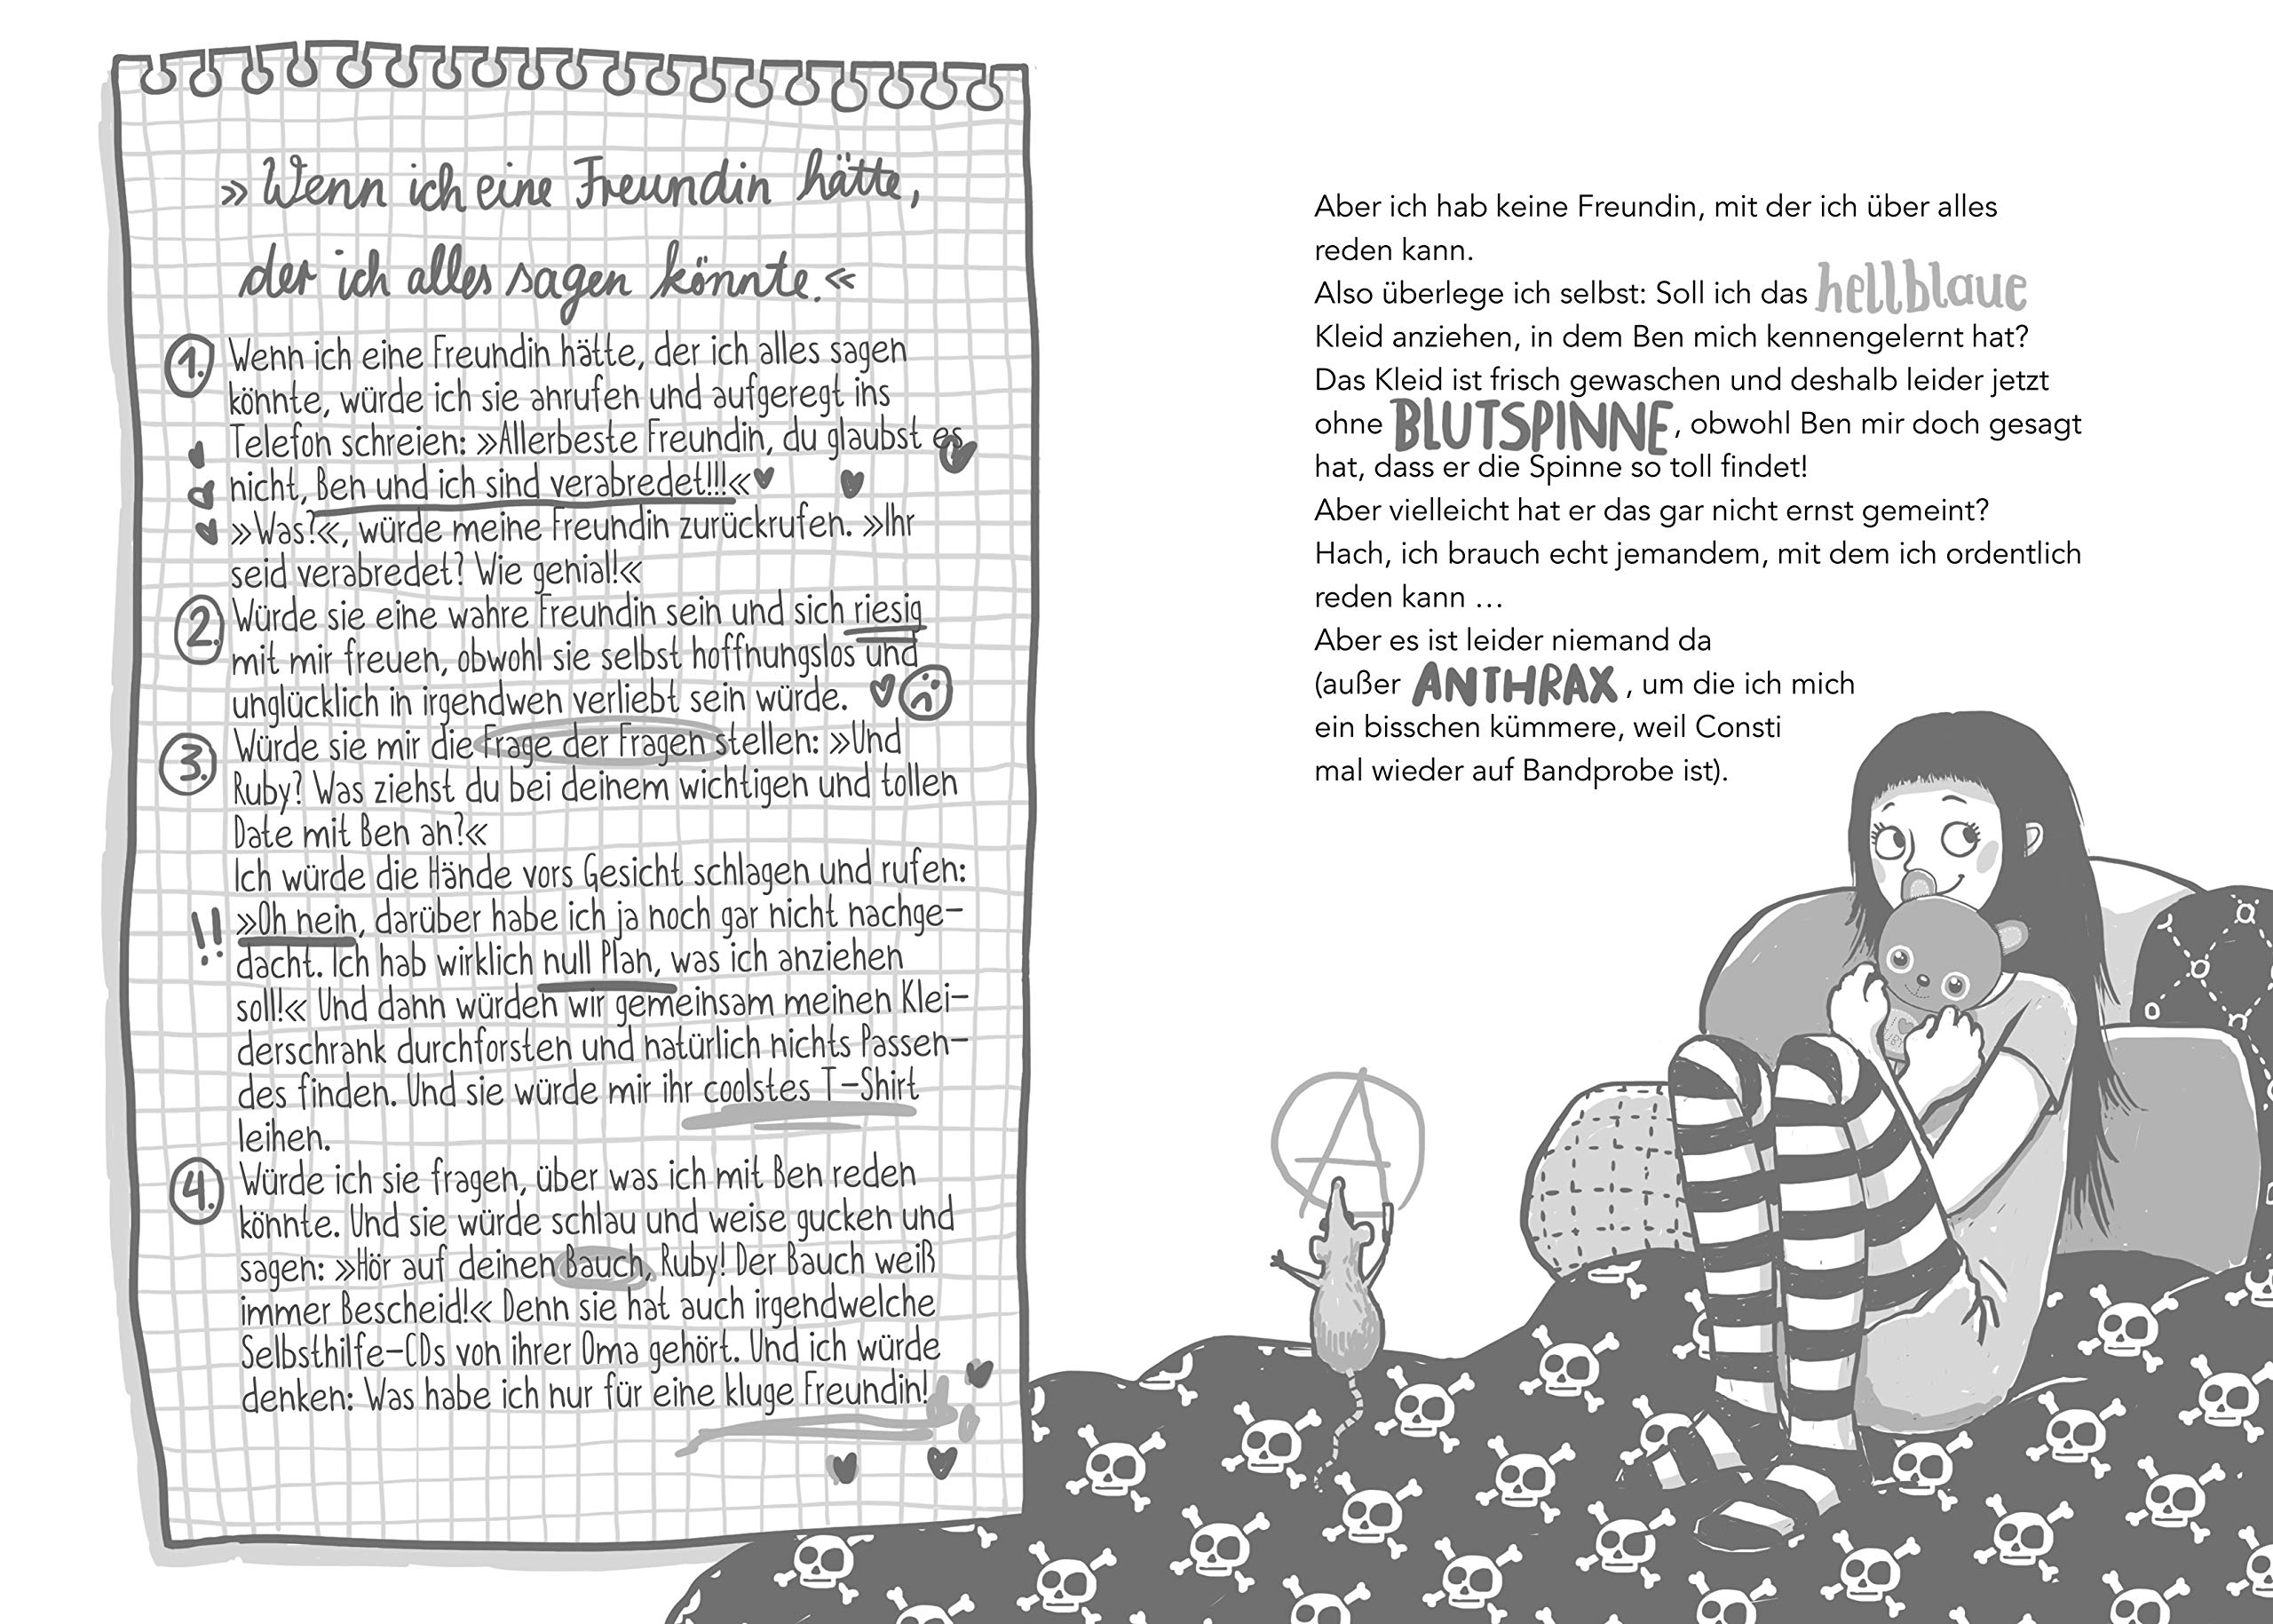 »Wenn ich eine Freundin hätte,
der ich alles sagen könnte.«
1. Wenn ich eine Freundin hätte, der ich alles sagen
könnte, würde ich sie anrufen und aufgeregt ins
Telefon schreien: »Allerbeste Freundin, du glaubst es
nicht, Ben und ich sind verabredet!!!«
»Was?«, würde meine Freundin zurückrufen. »Ihr
seid verabredet? Wie genial!«
2. Würde sie eine wahre Freundin sein und sich riesig
mit mir freuen, obwohl sie selbst hoffnungslos und
unglücklich in irgendwen verliebt sein würde.
3. Würde sie mir die Frage der Fragen stellen: »Und
Ruby? Was ziehst du bei deinem wichtigen und tollen
Date mit Ben an?«
Ich würde die Hände vors Gesicht schlagen und rufen:
!! »Oh nein, darüber habe ich ja noch gar nicht nachge-
dacht. Ich hab wirklich null Plan, was ich anziehen
soll!« Und dann würden wir gemeinsam meinen Klei-
derschrank durchforsten und natürlich nichts Passen-
des finden. Und sie würde mir ihr coolstes T-Shirt
leihen.
4. Würde ich sie fragen, über was ich mit Ben reden
könnte. Und sie würde schlau und weise gucken und
sagen: »Hör auf deinen Bauch, Ruby! Der Bauch weiß
immer Bescheid!« Denn sie hat auch irgendwelche
Selbsthilfe-CDs von ihrer Oma gehört. Und ich würde
denken: Was habe ich nur für eine kluge Freundin!
Aber ich hab keine Freundin, mit der ich über alles
reden kann.
Also überlege ich selbst: Soll ich das hellblaue
Kleid anziehen, in dem Ben mich kennengelernt hat?
Das Kleid ist frisch gewaschen und deshalb leider jetzt
ohne BLUTSPINNE, obwohl Ben mir doch gesagt
hat, dass er die Spinne so toll findet!
Aber vielleicht hat er das gar nicht ernst gemeint?
Hach, ich brauch echt jemandem, mit dem ich ordentlich
reden kann …
Aber es ist leider niemand da
(außer ANTHRAX, um die ich mich
ein bisschen kümmere, weil Consti
mal wieder auf Bandprobe ist).
A